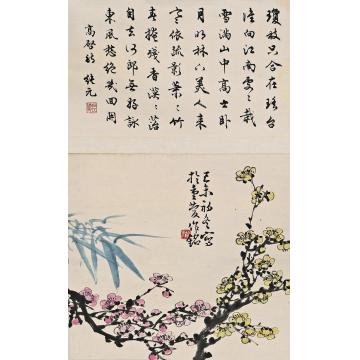 瓊姿只合在瑤台
誰向江南處々栽
雪滿山中高士卧
月明林下美人来
寒依疏影蕭々竹
春掩殘香漠々苔
自去何郎無好詠
東風愁絕幾回開
高啓詩
初冬寫
於重慶